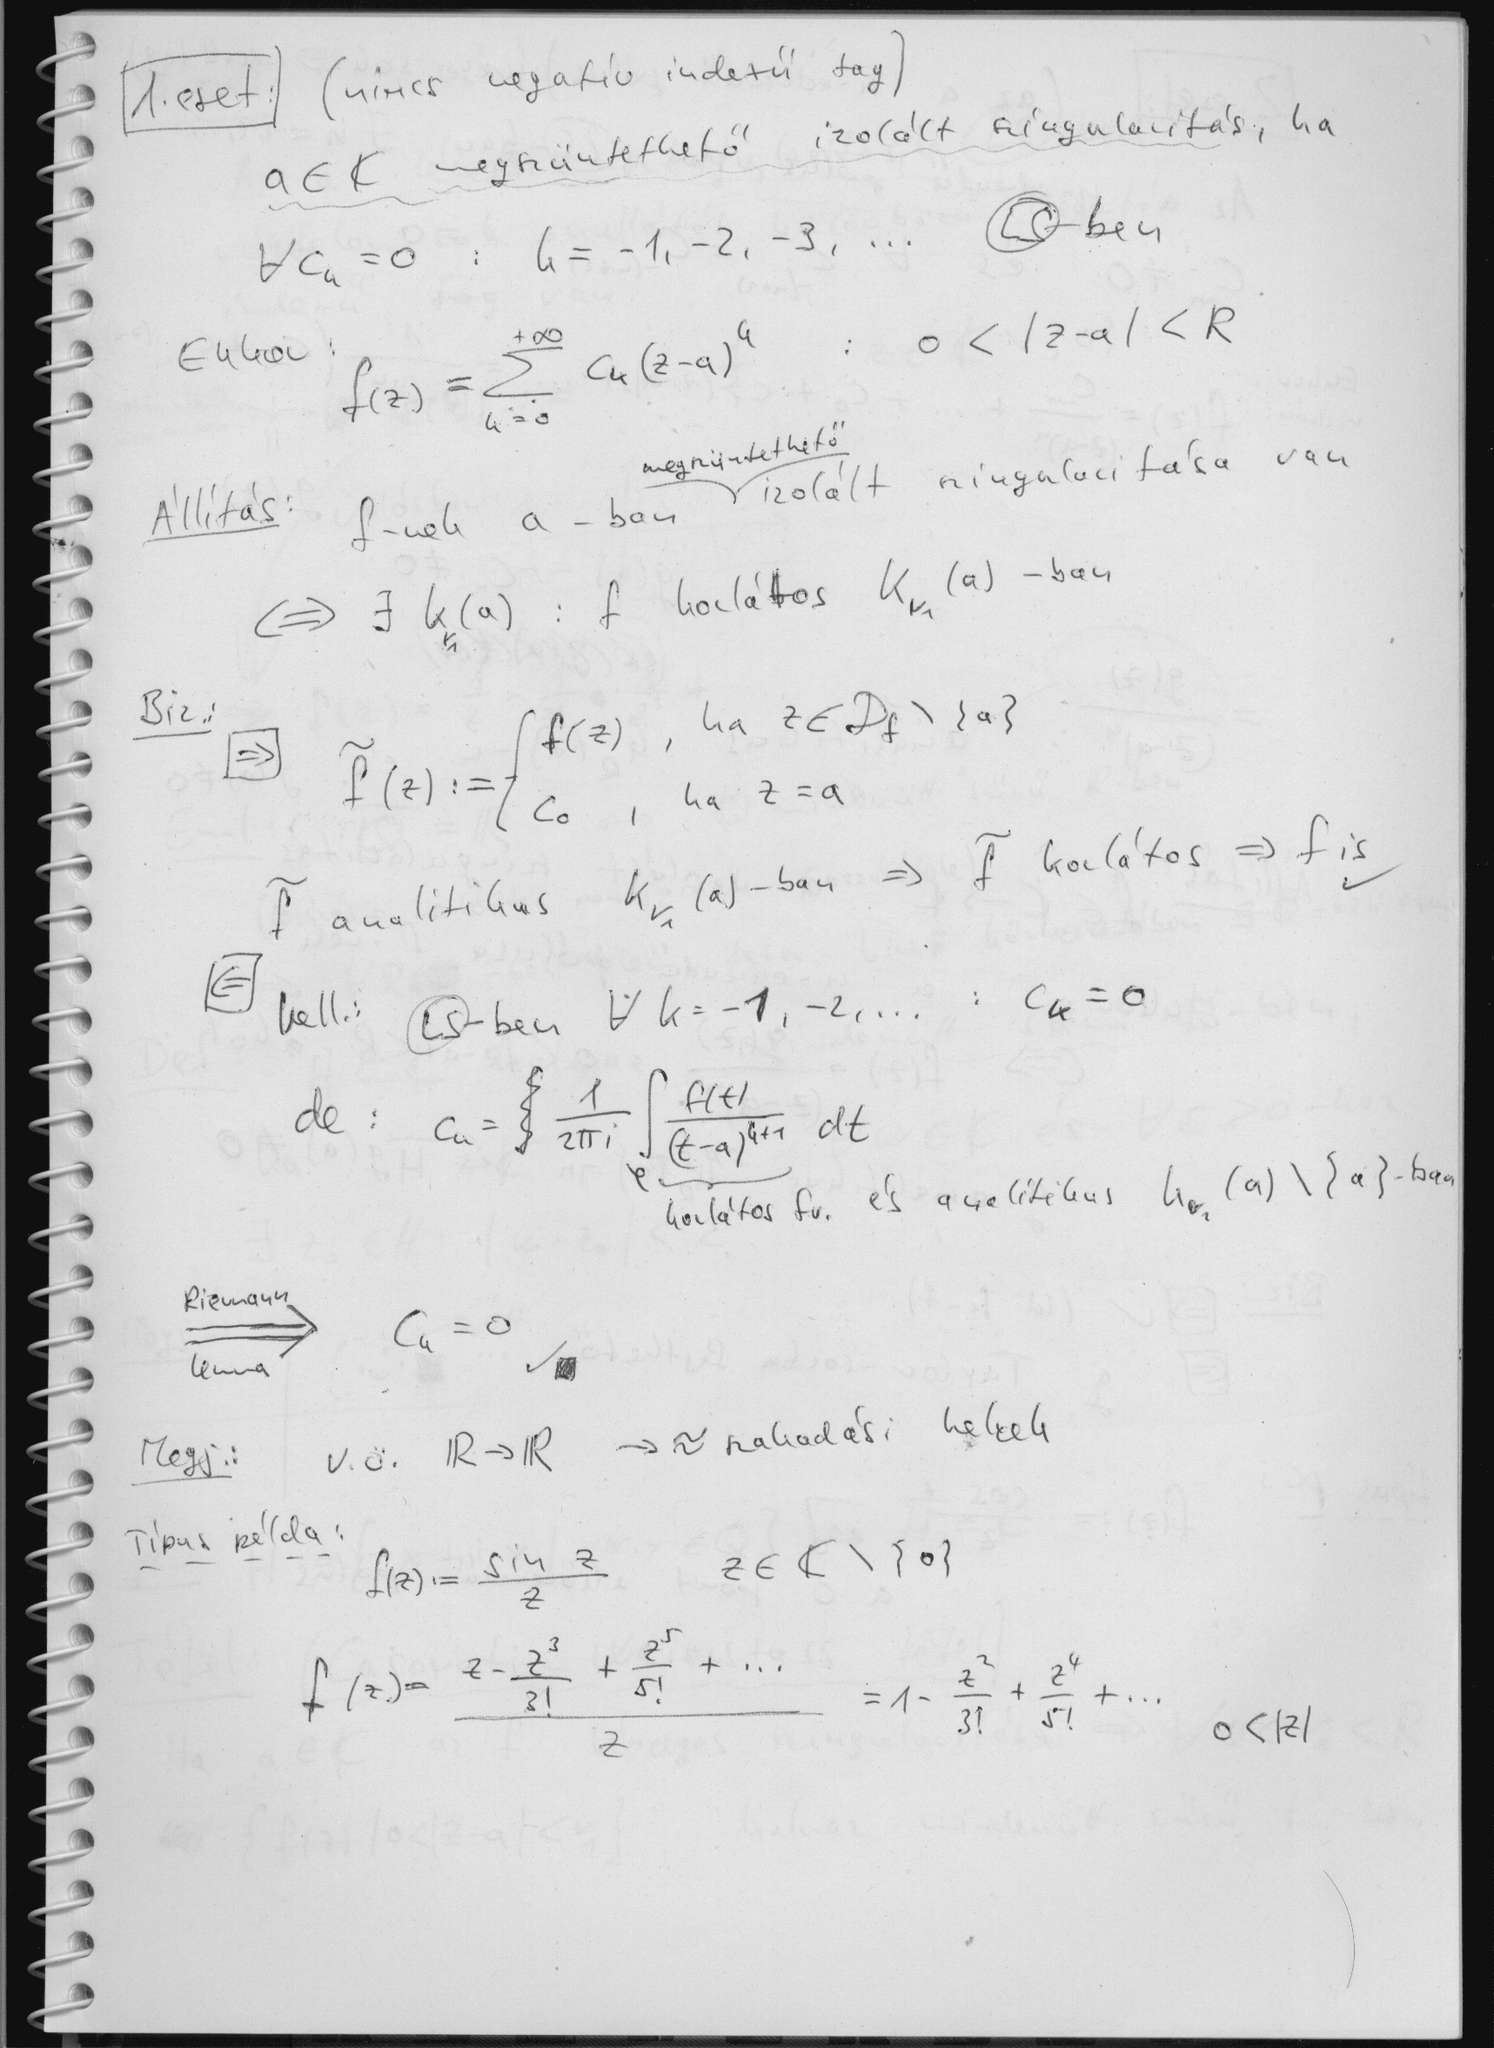 1. eset: (nincs negatív indexű tag)
a ∈ ₵ megszüntethető izolált szingularitás, ha
∀ c_k = 0 : k = -1, -2, -3, ... LS-ben
Ekkor: f(z) = \sum_{k=0}^{+∞} c_k (z-a)^k : 0 < |z-a| < R
Állítás: f-nek a-ban megszüntethető izolált szingularitása van
⇔ ∃ k_{r_1}(a) : f korlátos K_{r_1}(a)-ban
Biz.:
⇒ \tilde{f}(z) := { f(z), ha z ∈ D_f \ {a}
c_0, ha z = a
\tilde{f} analitikus K_{r_1}(a)-ban ⇒ \tilde{f} korlátos ⇒ f is ✓
⇐ kell: LS-ben ∀ k = -1, -2, ... : c_k = 0
de: c_k = { \frac{1}{2πi} ∫_φ \frac{f(t)}{(t-a)^{k+1}} dt
korlátos fv. és analitikus k_{r_1}(a) \ {a}-ban
Riemann
⇒ c_k = 0 ✓ ■
lemma
Megj.: v.ö. ℝ → ℝ → ≈ szakadási helyek
Típus példa:
f(z) := \frac{sin z}{z} z ∈ ₵ \ {0}
f(z) = \frac{z - \frac{z^3}{3!} + \frac{z^5}{5!} + ...}{z} = 1 - \frac{z^2}{3!} + \frac{z^4}{5!} + ... 0 < |z|